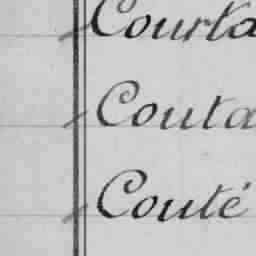 Courta
Couta
Couté